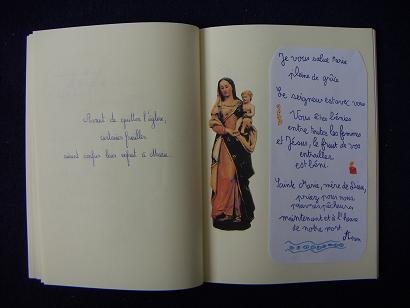 Avant de quitter l'église,
certaines familles
aiment confier leur enfant à Marie...
Je vous salue Marie
pleine de grâce
Le seigneur est avec vous
Vous êtes bénies
entre toutes les femmes
et Jésus, le fruit de vos
entrailles
est béni.
Sainte Marie, mère de Dieu,
priez pour nous
pauvres pêcheurs
maintenant et à l'heure
de notre mort.
Amen